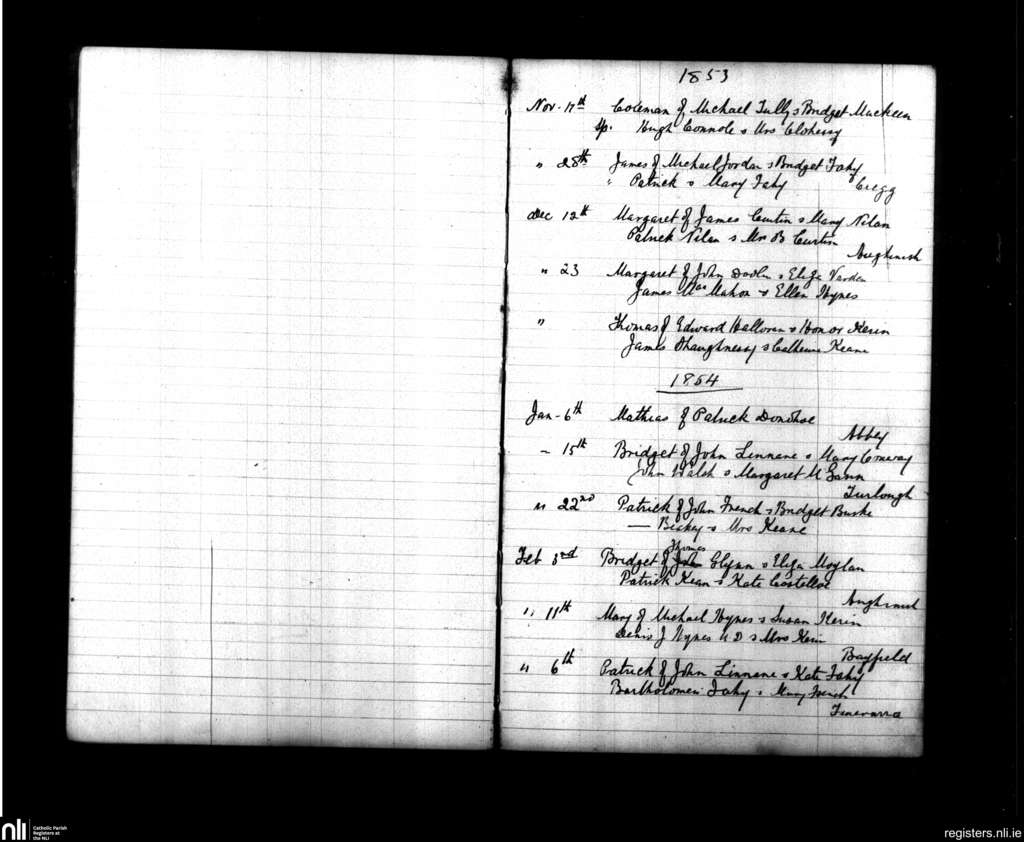 1853
Nov. 17th Coleman of Michael Tully & Bridget
Sp. Hugh Connole & Mrs Clohessy
" 28th James of Michael Jordan & Bridget Fahy
" Patrick & Mary Fahy
Cregg
Dec 12th Margaret of James Curtin & Mary Nilan
Patrick Nilan & Mrs B Curtin
Aughinish
" 23 Margaret of John & Eliza Varden
James MacMahon & Ellen Hynes
" Thomas of Edward Halloran & Honor Kerin
James Shaughnessy & Catherine Keane
1854
Jan - 6th Mathias of Patrick Donohoe
Abbey
- 15th Bridget of John Linnane & Mary
John Walsh & Margaret M Gann
Turlough
" 22nd Patrick of John French & Bridget Burke
— & Mrs Keane
Thomas
Feb 3rd Bridget of John Glynn & Eliza Moylan
Patrick Kean & Kate Costelloe
Aughinish
" 11th Mary of Michael Hynes & Susan Kerin
Denis J Hynes M D & Mrs Kerin
Bayfield
" 6th Patrick of John Linnane & Kate Fahy
Bartholomew Fahy & Mary French
Finavarra
nli
Catholic Parish
Registers at
the NLI
registers.nli.ie